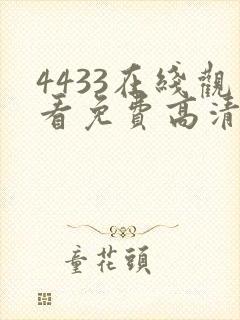 4433在綫觀
看免費高清
童花頭